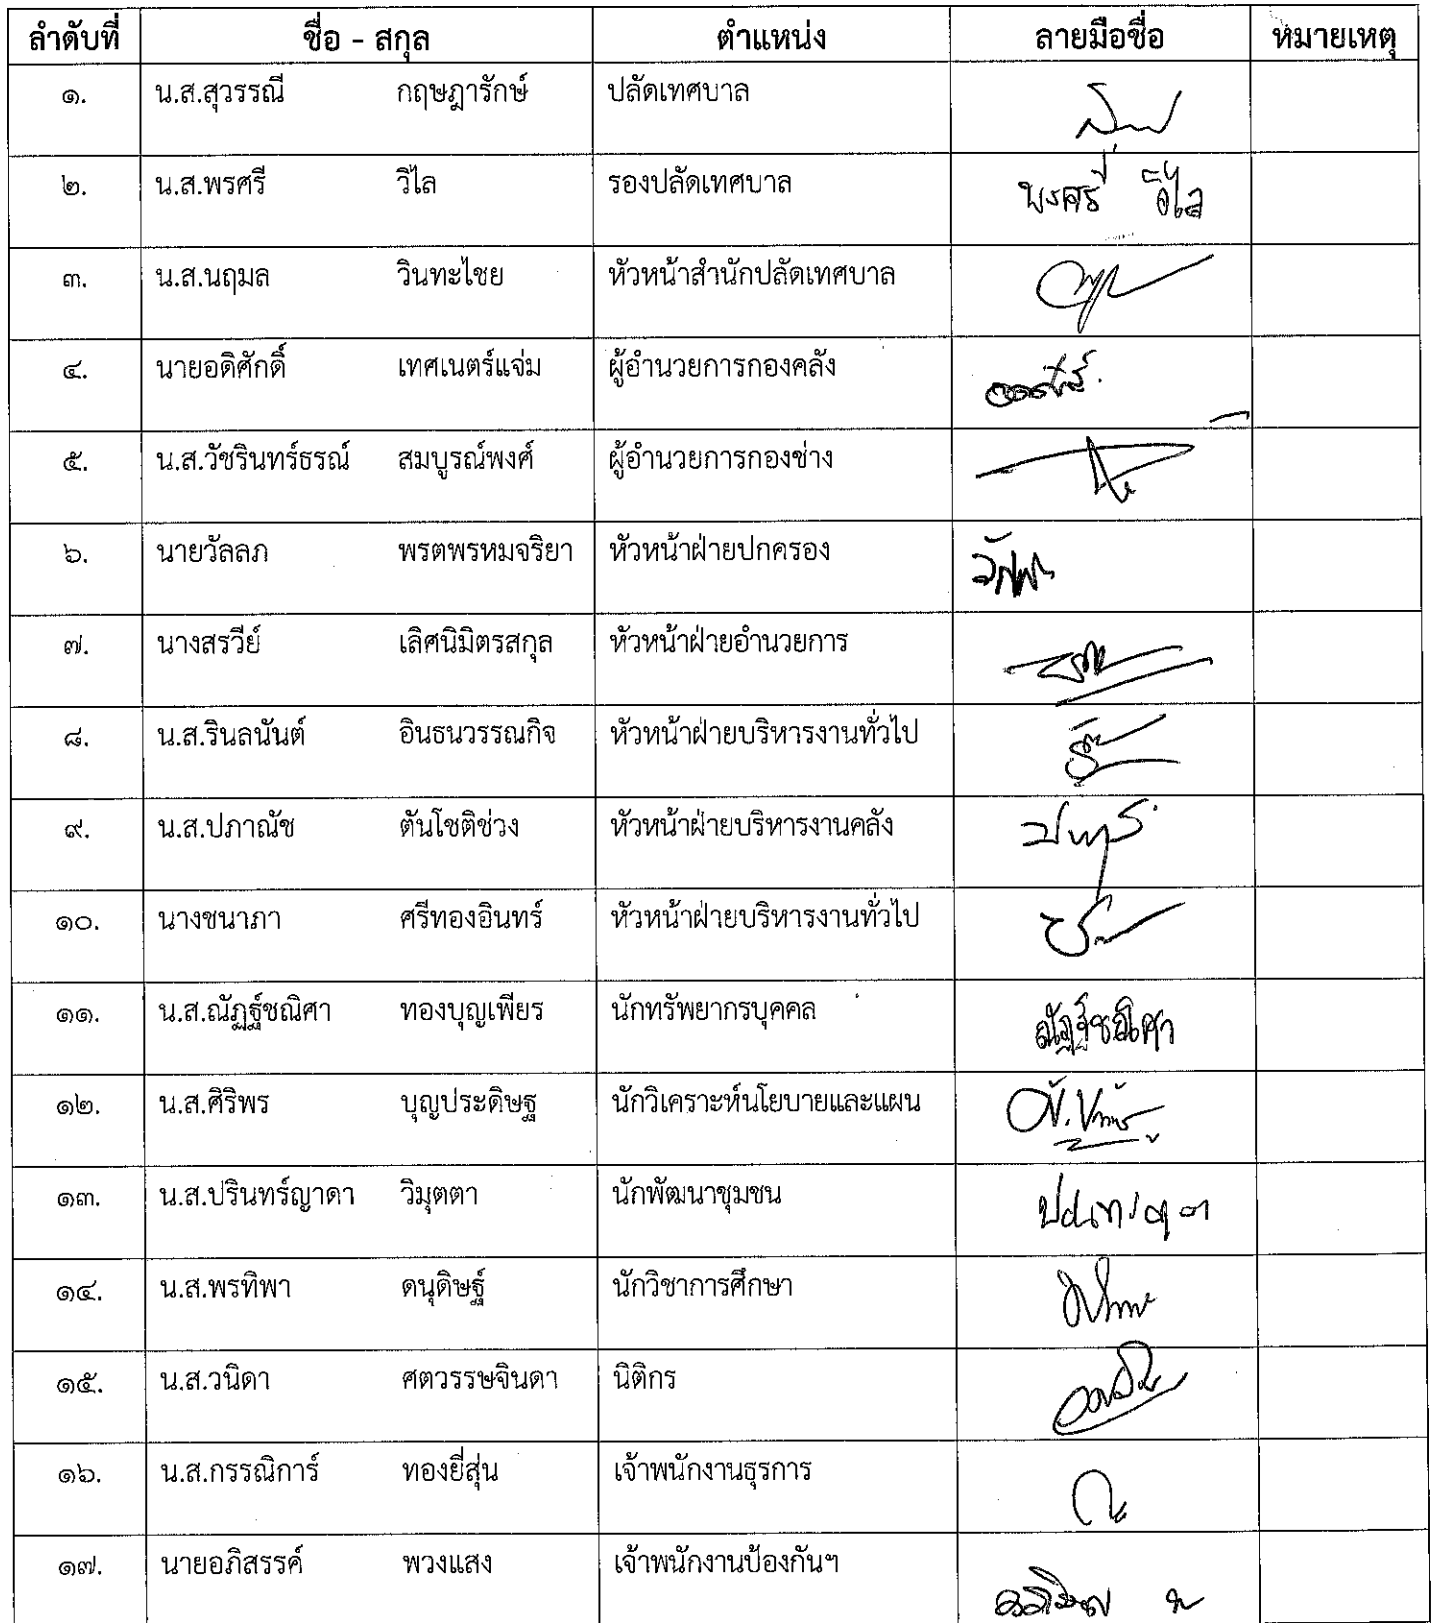 ลำดับที่ ชื่อ - สกุล ตำแหน่ง ลายมือชื่อ หมายเหตุ
๑. น.ส.สุวรรณี กฤษฎารักษ์ ปลัดเทศบาล
๒. น.ส.พรศรี วิไล รองปลัดเทศบาล พรศรี วิไล
๓. น.ส.นฤมล วินทะไชย หัวหน้าสำนักปลัดเทศบาล
๔. นายอดิศักดิ์ เทศเนตร์แจ่ม ผู้อำนวยการกองคลัง
๕. น.ส.วัชรินทร์ธรณ์ สมบูรณ์พงศ์ ผู้อำนวยการกองช่าง
๖. นายวัลลภ พรตพรหมจริยา หัวหน้าฝ่ายปกครอง
๗. นางสรวีย์ เลิศนิมิตรสกุล หัวหน้าฝ่ายอำนวยการ
๘. น.ส.รินลนันต์ อินธนวรรณกิจ หัวหน้าฝ่ายบริหารงานทั่วไป
๙. น.ส.ปภาณัช ตันโชติช่วง หัวหน้าฝ่ายบริหารงานคลัง
๑๐. นางชนาภา ศรีทองอินทร์ หัวหน้าฝ่ายบริหารงานทั่วไป
๑๑. น.ส.ณัฏฐ์ชณิศา ทองบุญเพียร นักทรัพยากรบุคคล ณัฏฐ์ชณิศา
๑๒. น.ส.ศิริพร บุญประดิษฐ นักวิเคราะห์นโยบายและแผน
๑๓. น.ส.ปรินทร์ญาดา วิมุตตา นักพัฒนาชุมชน
๑๔. น.ส.พรทิพา ดนุดิษฐ์ นักวิชาการศึกษา
๑๕. น.ส.วนิดา ศตวรรษจินดา นิติกร
๑๖. น.ส.กรรณิการ์ ทองยี่สุ่น เจ้าพนักงานธุรการ
๑๗. นายอภิสรรค์ พวงแสง เจ้าพนักงานป้องกันฯ